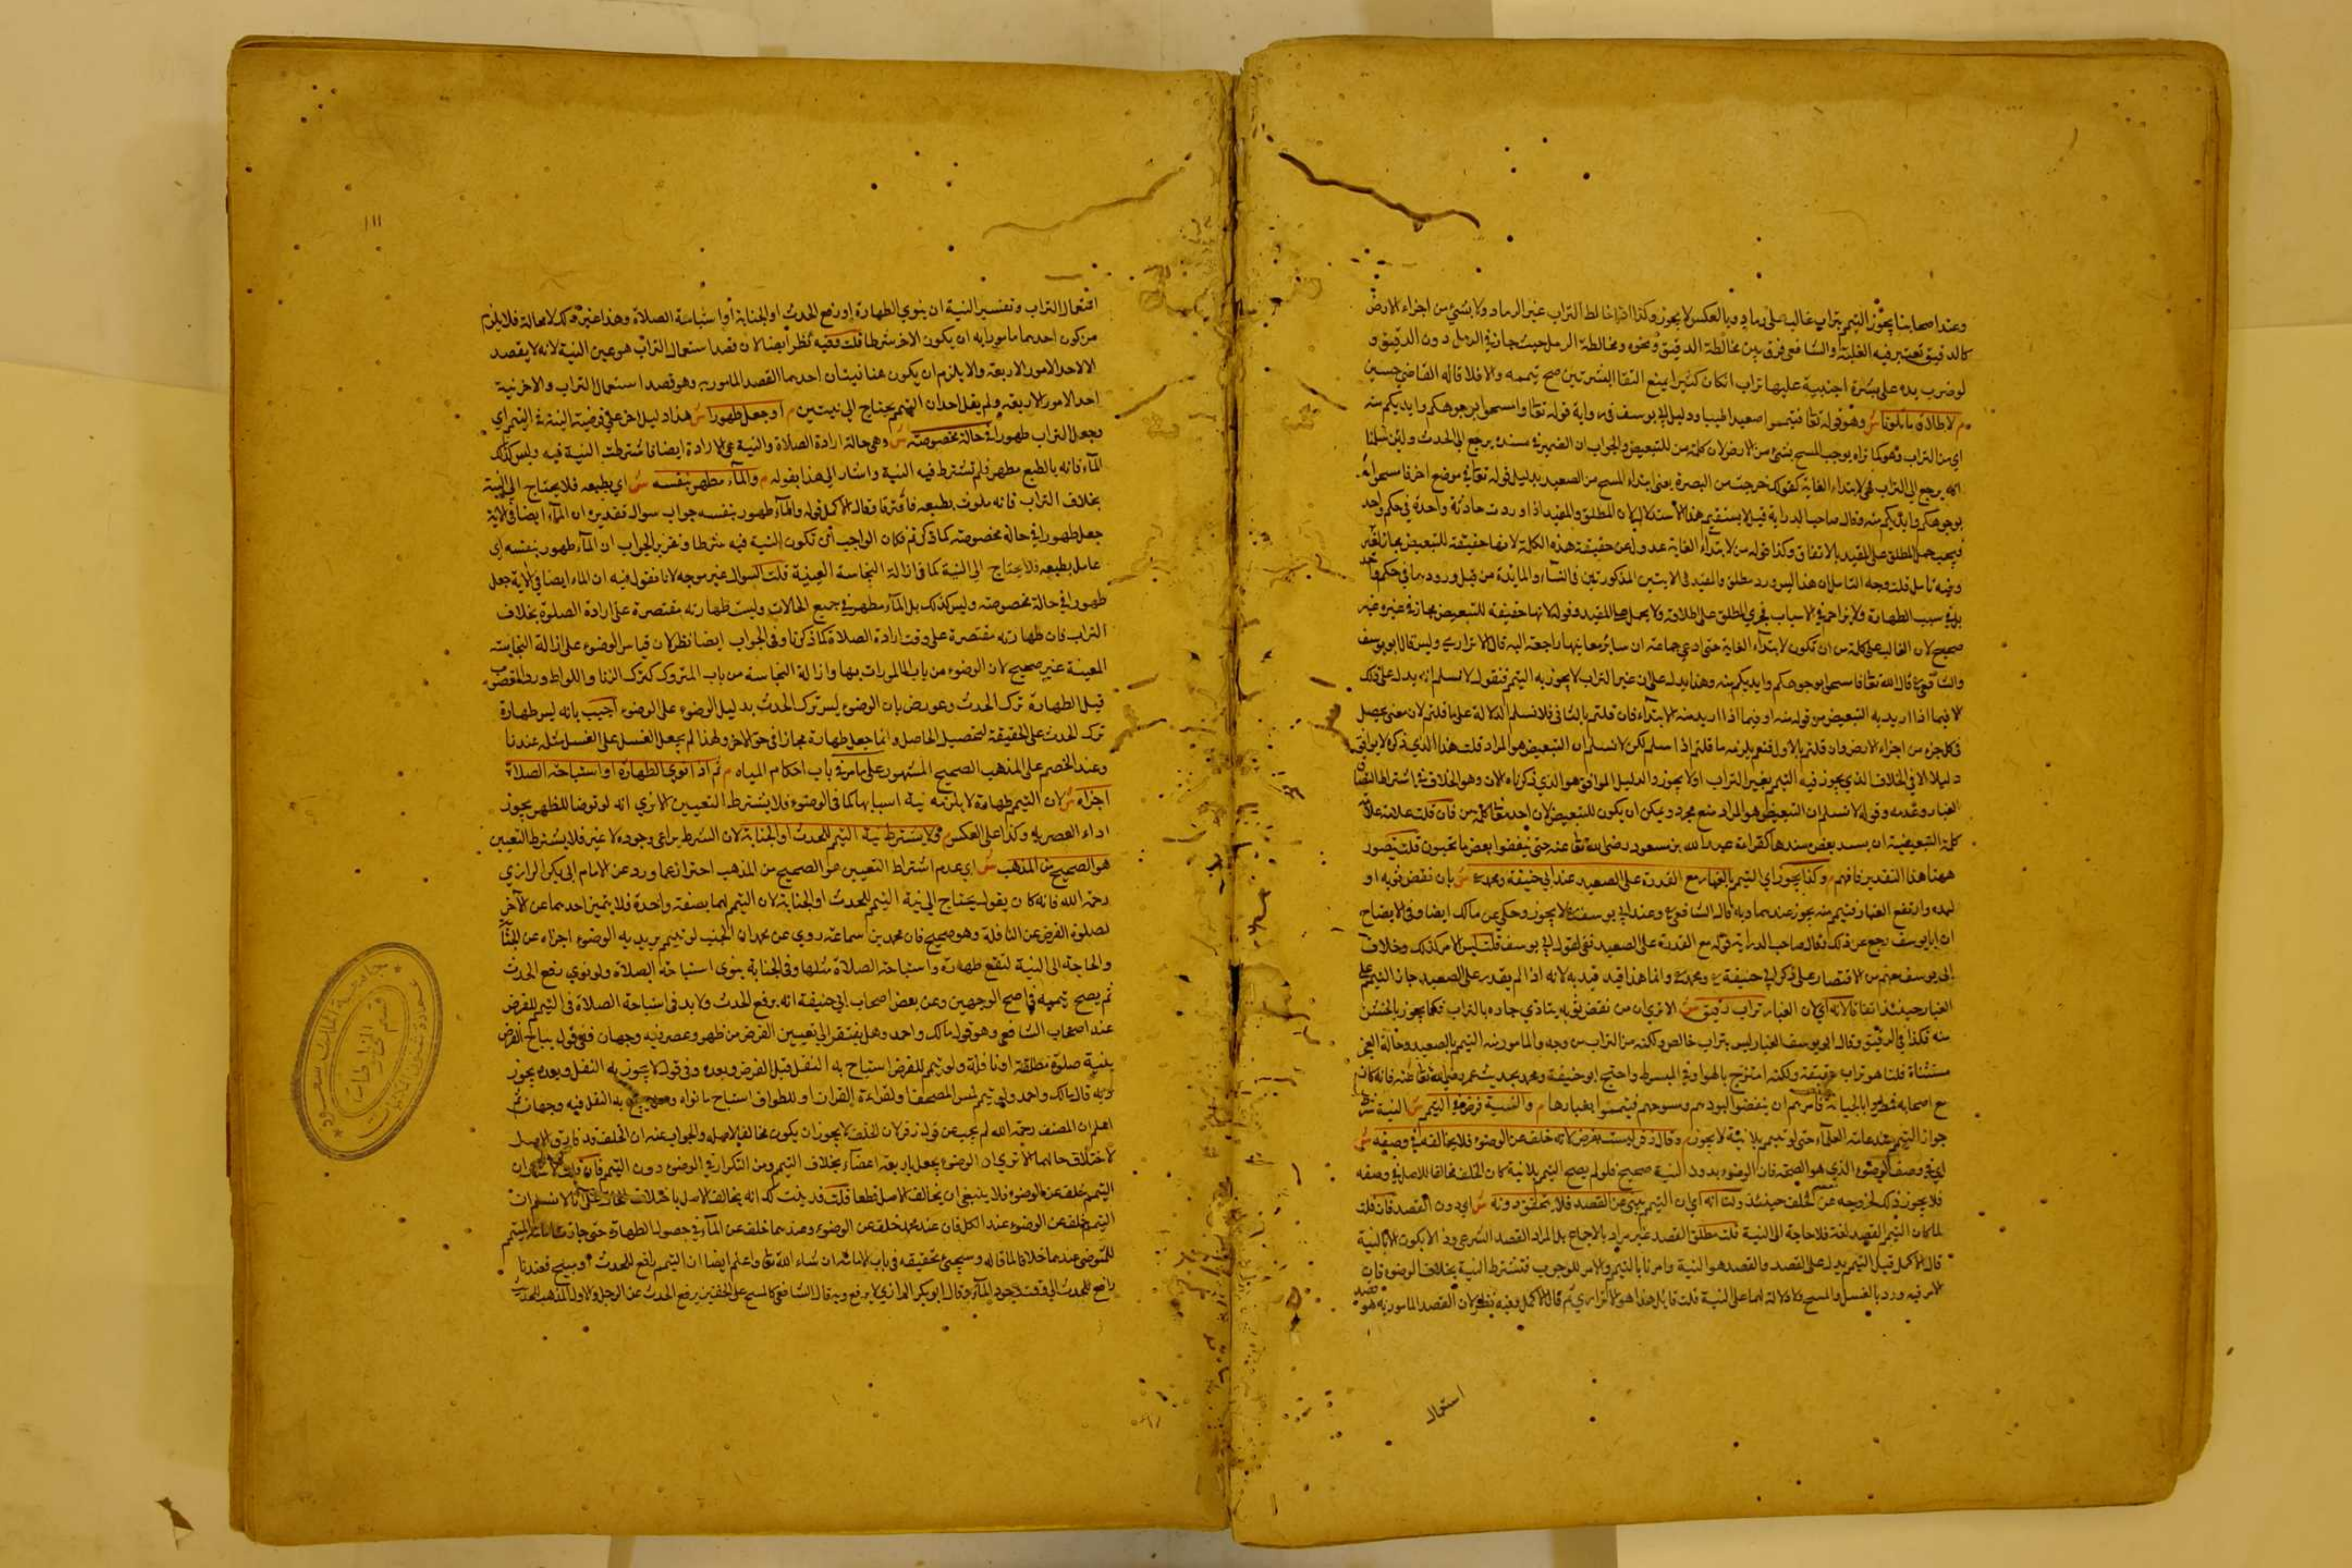 وعند اصحابنا يجوز التيمم بتراب غالب على رماد وبالعكس لا يجوز وكذا اذا خالط التراب غير الرماد ولا بشيء من اجزاء الارض
كالدقيق تعتبر فيه الغلبة والشافعي فرق بين مخالطة الدقيق ونحوه ومخالطة الرمل حيث جاز في الرمل دون الدقيق و
لو ضرب يده على بشرة اجنبية عليها تراب ان كان كثيرا يمنع التقا البشرتين صح تيممه والا فلا قاله القاضي حسين
م لاطلاق ما تلونا ش وهو قوله تعا فتيمموا صعيدا طيبا ودليل ابي يوسف في رواية قوله تعا وامسحوا بوجوهكم وايديكم منه
اي من التراب وهو كما تراه يوجب المسح بشئ من الارض لان كلمة من للتبعيض والجواب ان الضمير في منه يرجع الى الحدث ولئن سلمنا
انه يرجع الى التراب فهي لابتداء الغاية كقولك خرجت من البصرة يعني ابتداء المسح من الصعيد بدليل قوله تعا في موضع اخر فامسحوا
بوجوهكم وايديكم منه وقال صاحب الدراية قيل لا يستقيم هذا الاستدلال لان المطلق والمقيد اذا وردت حادثة واحدة في حكم واحد
فيجب حمل المطلق على المقيد بالاتفاق وكذا قوله من لابتداء الغاية عدول عن حقيقة هذه الكلمة لانها حقيقة للتبعيض مجاز لغيره
وفيه تامل قلت وجه التامل ان هذا ليس ورود مطلق والمقيد في الايتين المذكورتين في النساء والمائدة من قبيل ورودهما في حكم واحد
بل في سبب الطهارة ولا مزاحمة في الاسباب فيجري المطلق على اطلاقه ولا يحمل على المقيد وقوله لانها حقيقة للتبعيض مجاز في غيره غير
صحيح لان الغالب على كلمة من ان تكون لابتداء الغاية حتى ادعى جماعة ان سائر معانيها راجعة اليه قال الاترازي وليس قال ابو يوسف
والشافعي قال الله تعا فامسحوا بوجوهكم وايديكم منه وهذا يدل على ان غير التراب لا يجوز به التيمم فنقول لا نسلم انه يدل على ذلك
لا فيما اذا اريد به التبعيض من قوله منه او فيما اذا اريد منه الابتداء فان قلتم بالثاني فلا نسلم الدلالة على ما قلتم لان معنى يحصل
في كل جزء من اجزاء الارض وان قلتم بالاول فنعم يلزم ما قلتم اذا سلم لكن لا نسلم ان التبعيض هو المراد قلت هذا الذي ذكره لا يوافق
دليلا الا في الخلاف الذي يجوز فيه التيمم بغير التراب او لا يجوز والدليل الموافق هو الذي ذكرناه الان وهو الخلاف في اشتراط التصاق
الغبار وعدمه وقوله لا نسلم ان التبعيض هو المراد منع مجرد ويمكن ان يكون للتبعيض لان احد معنى كلمة من فان قلت علامة
كلمة التبعيضية ان يسد بعض مسدها كقراءة عبد الله بن مسعود رضي الله تعا عنه حتى تنفقوا بعض ما تحبون قلت يتصور
ههنا هذا التقدير فافهم م وكذا يجوز اي التيمم بالغبار مع القدرة على الصعيد عند ابي حنيفة ومحمد ش بان نفض ثوبه او
لبده وارتفع الغبار فتيمم منه يجوز عندهما وبه قال الشافعي وعند ابي يوسف لا يجوز وحكي عن مالك ايضا وفي الايضاح
ان ابا يوسف رجع عن ذلك وقال صاحب الدراية قوله مع القدرة على الصعيد نفي لقول ابي يوسف قلت ليس الامر كذلك وخلاف
ابي يوسف يفهم من الاقتصار على ذكر ابي حنيفة ومحمد وانما هذا قيد قيد به لانه اذا لم يقدر على الصعيد جاز التيمم على
الغبار حينئذ اتفاقا لانه اي لان الغبار تراب رقيق ش الا ترى ان من نفض ثوبه يتاذى جاره بالتراب فكما يجوز بالخشن
منه فكذا في الرقيق وقال ابو يوسف الغبار ليس بتراب خالص ولكنه من التراب من وجه والمامور به التيمم بالصعيد وحالة العجز
مستثناة قلنا هو تراب حقيقة ولكنه امتزج بالهواء في المبسوط واحتج ابو حنيفة ومحمد بحديث عمر رضي الله تعا عنه فانه كان
مع اصحابه مطروا بالجابية فامرهم ان ينفضوا لبودهم وسروجهم فيتيمموا بغبارها م والنية فرض في التيمم ش النية شرط
جواز التيمم عند عامة العلماء حتى لو تيمم بلا نية لا يجوز م وقال زفر ليست بفرض لانه خلف عن الوضوء فلا يخالفه في وصفه ش
اي في وصف الوضوء الذي هو الصحة فان الوضوء بدون النية صحيح فلو لم يصح التيمم بلا نية كان الخلف مخالفا للاصل في وصفه
فلا يجوز ذلك لخروجه عن الخلف حينئذ ولنا انه اي ان التيمم ينبئ عن القصد فلا يتحقق دونه ش اي دون القصد فان قلت
لما كان التيمم القصد لغة فلا حاجة الى النية قلت مطلق القصد غير مراد بالاجماع بل المراد القصد الشرعي وذا لا يكون الا بالنية
قال الاكمل قيل التيمم يدل على القصد والقصد هو النية وامرنا بالتيمم والامر للوجوب فتشترط النية بخلاف الوضوء فان
الامر فيه ورد بالغسل والمسح ولا دلالة لهما على النية قلت قائل هذا هو الاترازي ثم قال الاكمل وفيه نظر لان القصد المامور به هو قصد
استعمال
١١١
استعمال التراب وتفسير النية ان ينوي الطهارة او رفع الحدث او الجنابة او استباحة الصلاة وهذا غير ذلك لا محالة فلا يلزم
من كون احدهما مامورا به ان يكون الاخر شرطا قلت فقيه نظر ايضا لان قصد استعمال التراب هو عين النية لانه لا يقصد
الا لاحد الامور الاربعة والا يلزم ان يكون هنا نيتان احدهما القصد المامور به وهو قصد استعمال التراب والاخر نية
احد الامور الاربعة ولم يقل احد ان التيمم يحتاج الى نيتين م او جعل طهورا ش هذا دليل اخر على فرضية النية في التيمم اي
وجعل التراب طهورا في حالة مخصوصة ش وهي حالة ارادة الصلاة والنية هي الارادة ايضا فاشترطت النية فيه وليس كذلك
الماء فانه بالطبع مطهر فلم تشترط فيه النية واشار الى هذا بقوله م والماء مطهر بنفسه ش اي بطبعه فلا يحتاج الى النية
بخلاف التراب فانه ملوث بطبعه فافترقا وقال الاكمل قوله والماء طهور بنفسه جواب سوال تقديره ان الماء ايضا في الاية
جعل طهورا في حالة مخصوصة كما ذكرتم فكان الواجب ان تكون النية فيه شرطا وتقرير الجواب ان الماء طهور بنفسه اي
عامل بطبعه فلا يحتاج الى النية كما في ازالة النجاسة العينية قلت السوال غير موجه لانا نقول فيه ان الماء ايضا في الاية جعل
طهورا في حالة مخصوصة وليس كذلك بل الماء مطهر في جميع الحالات وليست طهارته مقتصرة على ارادة الصلوة بخلاف
التراب فان طهارته مقتصرة على وقت ارادة الصلاة كما ذكرنا وفي الجواب ايضا نظر لان قياس الوضوء على ازالة النجاسة
المعينة غير صحيح لان الوضوء من باب المامورات بها وازالة النجاسة من باب المتروك كترك الزنا واللواط ورد المغصوب
قيل الطهارة ترك الحدث وعورض بان الوضوء ليس ترك الحدث بدليل الوضوء على الوضوء اجيب بانه ليس طهارة
ترك الحدث على الحقيقة لتحصيل الحاصل وانما جعل طهارة مجازا في حق الاخر ولهذا لم يجعل الغسل على الغسل مثله عندنا
وعند الخصم على المذهب الصحيح المشهور على ما مر في باب احكام المياه م ثم اذا نوى الطهارة او استباحة الصلاة
اجزاه ش لان التيمم طهارة لا يلزمه نية اسبابها كما في الوضوء فلا يشترط التعيين الا ترى انه لو توضا للظهر يجوز
اداء العصر به وكذا على العكس م ولا يشترط نية التيمم للحدث او الجنابة لان الشرط يراعى وجوده لا غير فلا يشترط التعيين
هو الصحيح من المذهب ش اي عدم اشتراط التعيين هو الصحيح من المذهب احترازا عما ورد عن الامام ابي بكر الرازي
رحمة الله فانه كان يقول يحتاج الى نية التيمم للحدث او الجنابة لان التيمم لهما بصفة واحدة فلا يتميز احدهما عن الاخر
لصلوة الفرض عن النافلة وهو صحيح فان محمد بن سماعة روى عن محمد ان الجنب لو تيمم يريد به الوضوء اجزاه عن الجنابة
والحاجة الى النية لتقع طهارة واستباحة الصلاة مثلها وفي الجنابة ينوي استباحة الصلاة ولو نوى رفع الحدث
ثم يصح تيممه في اصح الوجهين وعن بعض اصحاب ابي حنيفة انه يرفع الحدث ولا بد في استباحة الصلاة في التيمم للفرض
عند اصحاب الشافعي وهو قول مالك واحمد وهل يفتقر الى تعيين الفرض من ظهر وعصر فيه وجهان ففي قول يباح الفرض
بنية صلوة مطلقة او نافلة ولو تيمم للفرض استباح به النفل قبل الفرض وبعده وفي قول لا يجوز به النفل وبعده يجوز
وبه قال مالك واحمد ولو تيمم لمس المصحف او لقراءة القران او للطواف استباح ما نواه به النفل فيه وجهان
اعلم ان المصنف رحمة الله لم يجب عن قول زفر لان الخلف لا يجوز ان يكون مخالفا لاصله والجواب عنه ان الخلف قد فارق الاصل
لاختلاف حالهما الا ترى ان الوضوء يحصل باربعة اعضاء بخلاف التيمم ومن التكرار في الوضوء دون التيمم فان قلت لا شك ان
التيمم خلف عن الوضوء فلا ينبغي ان يخالف الاصل قطعا قلت قد بينت لك انه يخالف الاصل باختلاف الحال على انا لا نسلم ان
التيمم خلف عن الوضوء عند الكل فان عند محمد خلف عن الوضوء وعندهما خلف عن الماء في حصول الطهارة حتى جازت امامة المتيمم
للمتوضئ عندهما خلافا لما قاله وسيجئ تحقيقه في باب الامامة ان شاء الله تعا واعلم ايضا ان التيمم رافع للحدث او مبيح فعندنا
رافع للحدث الى وقت وجود الماء وقال ابو بكر الرازي لا يرفع وبه قال الشافعي كالمسح على الخفين يرفع الحدث عن الرجل والاول المذهب
جامعة الملك سعود
عمادة شؤون المكتبات
قسم المخطوطات